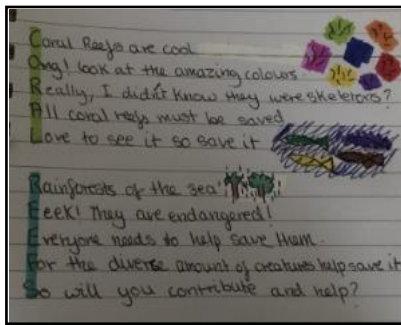 Coral Reefs are cool
Omg! look at the amazing colours.
Really, I didn't know they were skeletons?
All coral reefs must be saved
Love to see it so save it
Rainforests of the sea
Eeek! They are endangered!
Everyone needs to help save them.
For the diverse amount of creatures help save it
So will you contribute and help?